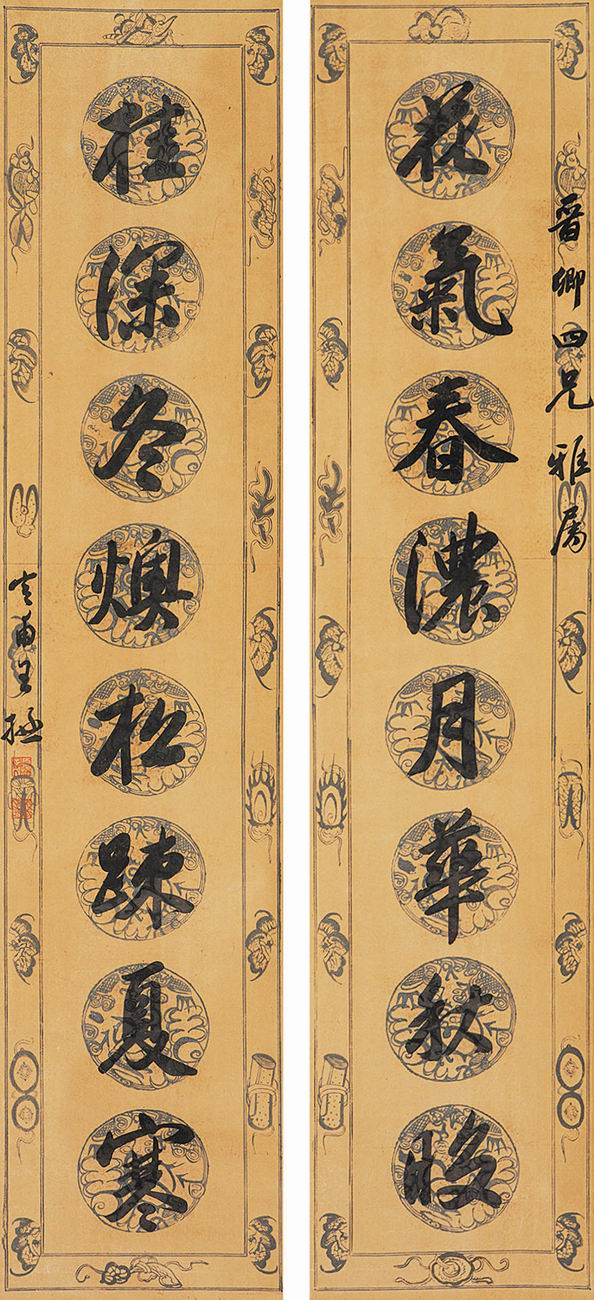 晋卿四兄雅属
花氣春濃月華秋晚
桂深冬燠松踈夏寒
定甫王拯